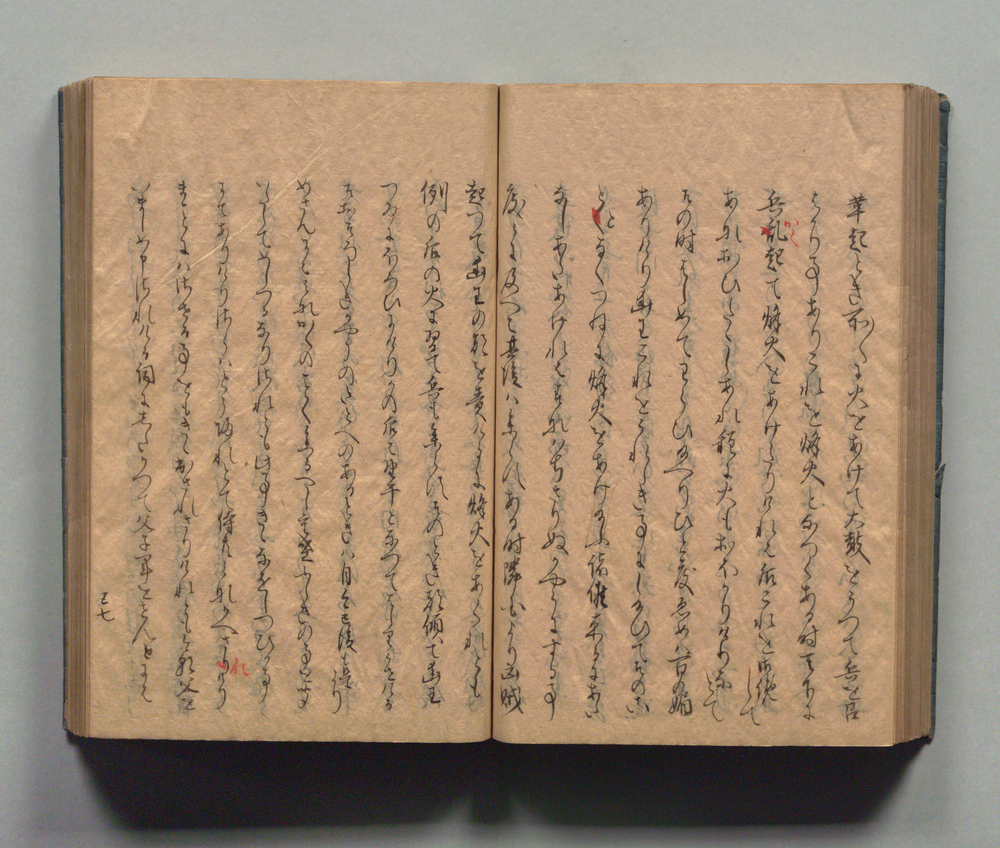 革起とき所々に火をあけて大鼓をうつて兵を召
はかり事ありこれを烽火となつくある時天下に
兵乱起て烽火をあけたりけれは后これを御覧して
あれおひたゝしあれ程に火もおほかりけりなとて
その時はしめてわらひ給へりひと度ゑめは百の媚
ありけり幽王これをうれしき事にし給ひてそのこ
とゝなくつねに烽火をあけ給ふ諸侯来るにあた
なしあたなけれはすなはちさりぬかやうにする事
度々に及へは其後は参らすある時隣国より凶賊
起つて幽王の都を責けるに烽火をあくれとも
例の后の火に習て兵も参らすそのとき都傾て幽王
つゐにほろひにけりかの后は野干となつてはしりうせける
そおそろしきかやうのためしのあるときは自今已後も是より
めさんにはみなかくのことくまいるへし重盛ふしきの事を
めしつるなりされとも此事きゝなをしつひか事
にてありけりさらはとう帰れとて侍ともみなかへされけり
まことにはさせる事をもきゝ出されさりけれとも父を
いさめ申されける詞にしたかつて父子軍をせんとにて
已七
かく
れ